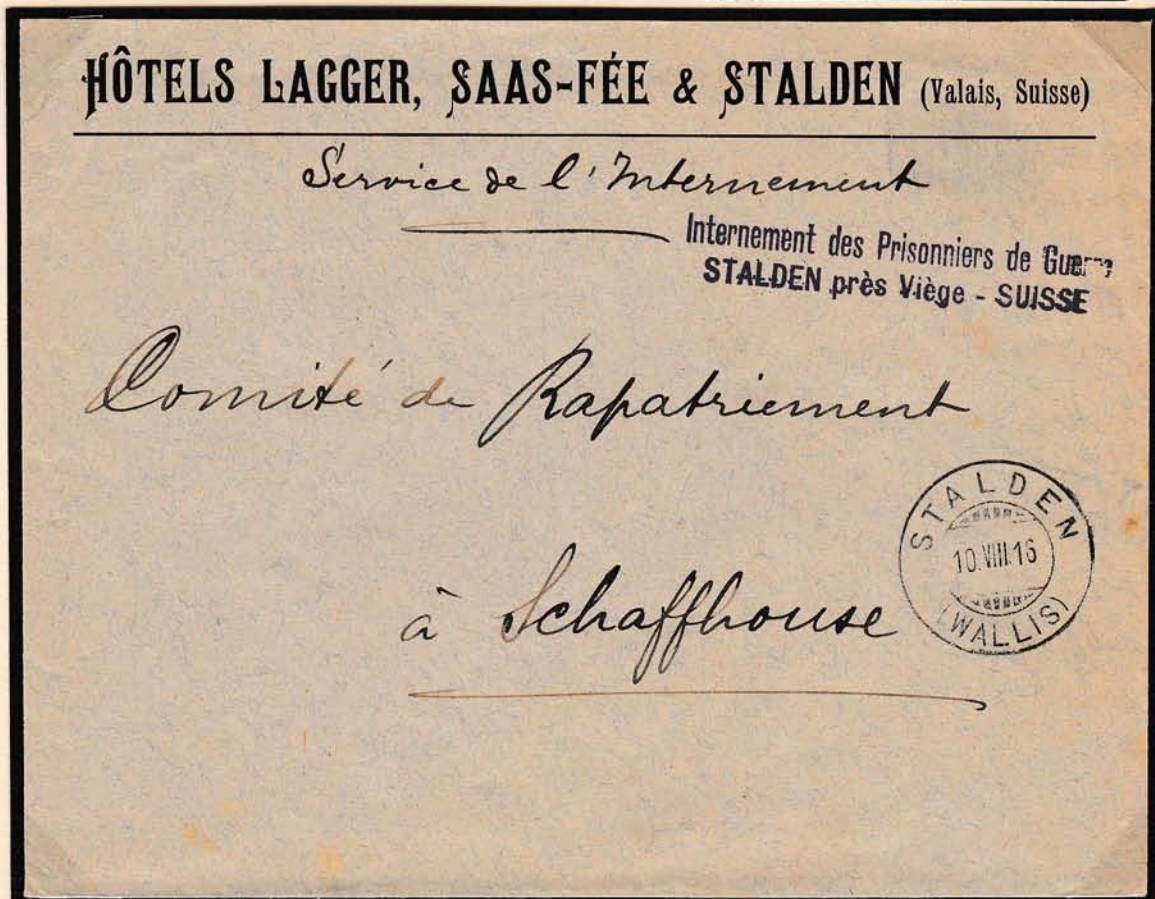 HÔTELS LAGGER, SAAS-FÉE & STALDEN (Valais, Suisse)
Service de l'Internement
Internement des Prisonniers de Guerre
STALDEN près Viège - SUISSE
Comité de Rapatriement
STALDEN
10.VIII.16
(WALLIS)
à Schaffhouse